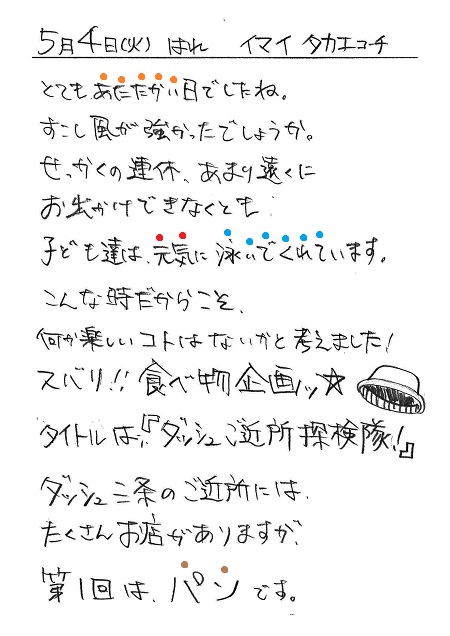 5月4日(火) はれ イマイ タカエコーチ
とてもあたたかい日でしたね。
すこし風が強かったでしょうか。
せっかくの連休、あまり遠くに
お出かけできなくとも
子ども達は、元気に泳いでくれています。
こんな時だからこそ、
何か楽しいコトはないかと考えました!
ズバリ!!食べ物企画ッ☆
タイトルは、『ダッシュご近所探検隊!』
ダッシュ三条のご近所には、
たくさんお店がありますが、
第1回は、パンです。